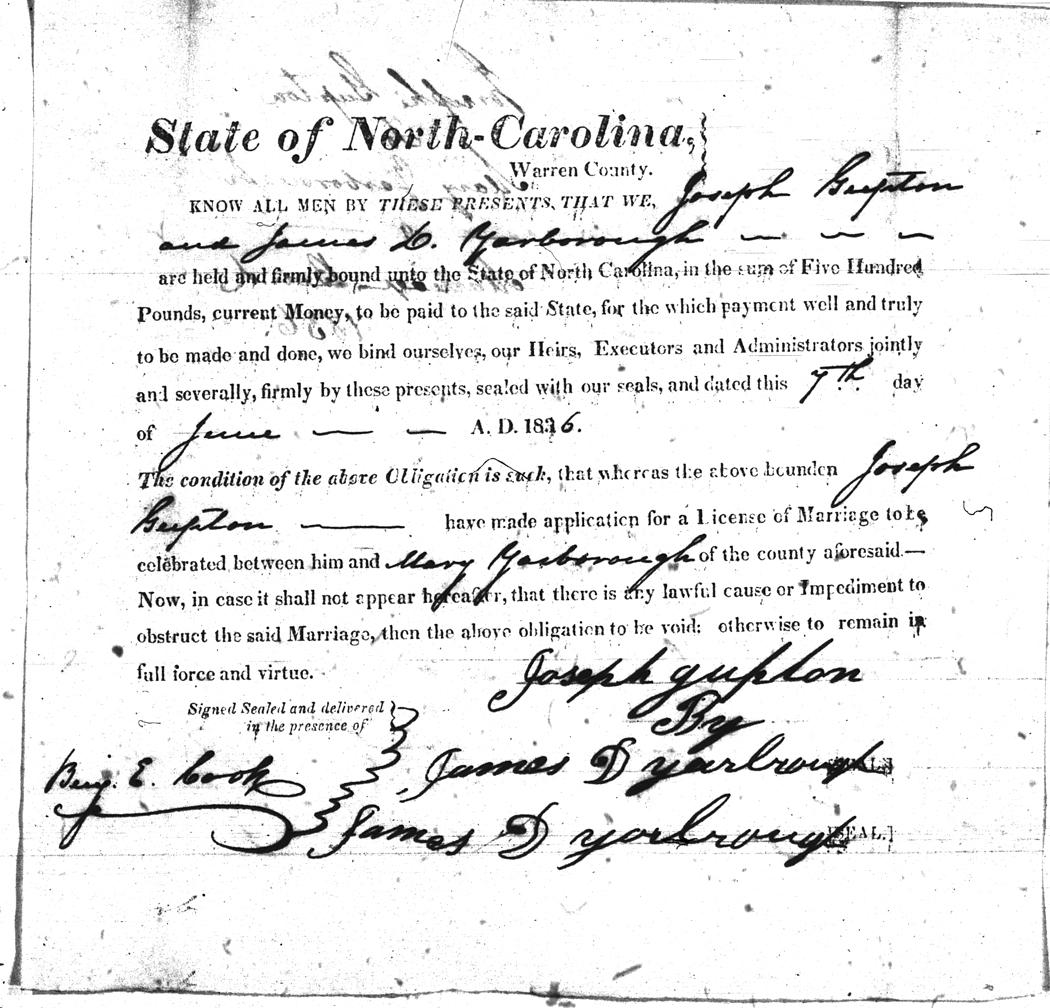 State of North-Carolina,
Warren County.
KNOW ALL MEN BY THESE PRESENTS, THAT WE, Joseph Gupton
and James D. Yarborough — — —
are held and firmly bound unto the State of North Carolina, in the sum of Five Hundred
Pounds, current Money, to be paid to the said State, for the which payment well and truly
to be made and done, we bind ourselves, our Heirs, Executors and Administrators jointly
and severally, firmly by these presents, sealed with our seals, and dated this 7th day
of June — — A. D. 1836.
The condition of the above Obligation is such, that whereas the above bounden Joseph
Gupton — have made application for a License of Marriage to be
celebrated between him and Mary Yarborough of the county aforesaid.—
Now, in case it shall not appear hereafter, that there is any lawful cause or Impediment to
obstruct the said Marriage, then the above obligation to be void: otherwise to remain in
full force and virtue.
Joseph gupton
Signed Sealed and delivered
in the presence of
By
Benj. E. Cook
James D yarbrough
James D yarbrough [SEAL.]